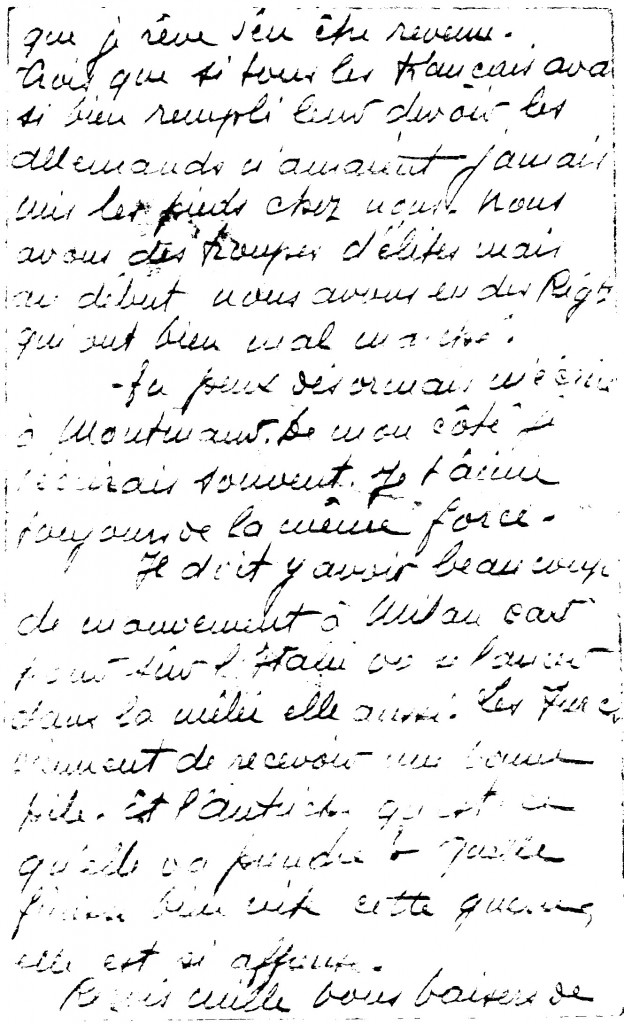 que je rêve d'en être revenu.
Crois que si tous les français ava
si bien rempli leur devoir les
allemands n'auraient jamais
mis les pieds chez nous. Nous
avons des troupes d'élites mais
au début nous avons eu des Régts
qui ont bien mal marché.
-Tu peux désormais m'écrire
à Montmaur. De mon côté je
t'écrirais souvent. Je t'aime
toujours de la même force.
Il doit y avoir beaucoup
de mouvement à Milan car
pour sûr l'Italie va se lancer
dans la mêlée elle aussi. Les Turcs
viennent de recevoir une bonne
pile. Et l'Autriche qu'est ce
qu'elle va prendre !
finisse bien vite cette guerre,
elle est si affreuse.
Reçois mille bons baisers de